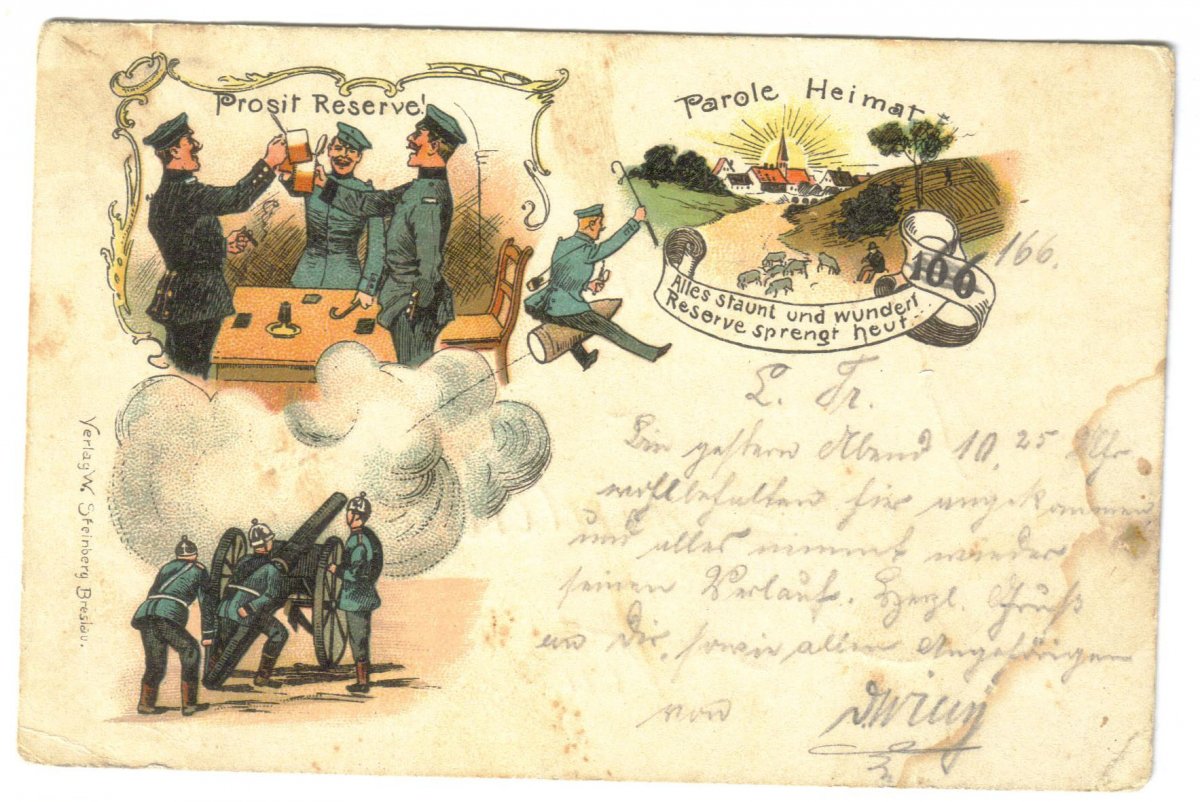 Prosit Reserve!
Parole Heimat
106
166.
Alles staunt und wundert
Reserve sprengt heut...
Verlag W. Steinberg Breslau.
L. Fr.
Bin gestern Abend 10,25 Uhr
wohlbehalten hier angekommen
und alles nimmt wieder
seinen Verlauf. Herzl. Gruß
an Dir, sowie allen Angehörigen
von